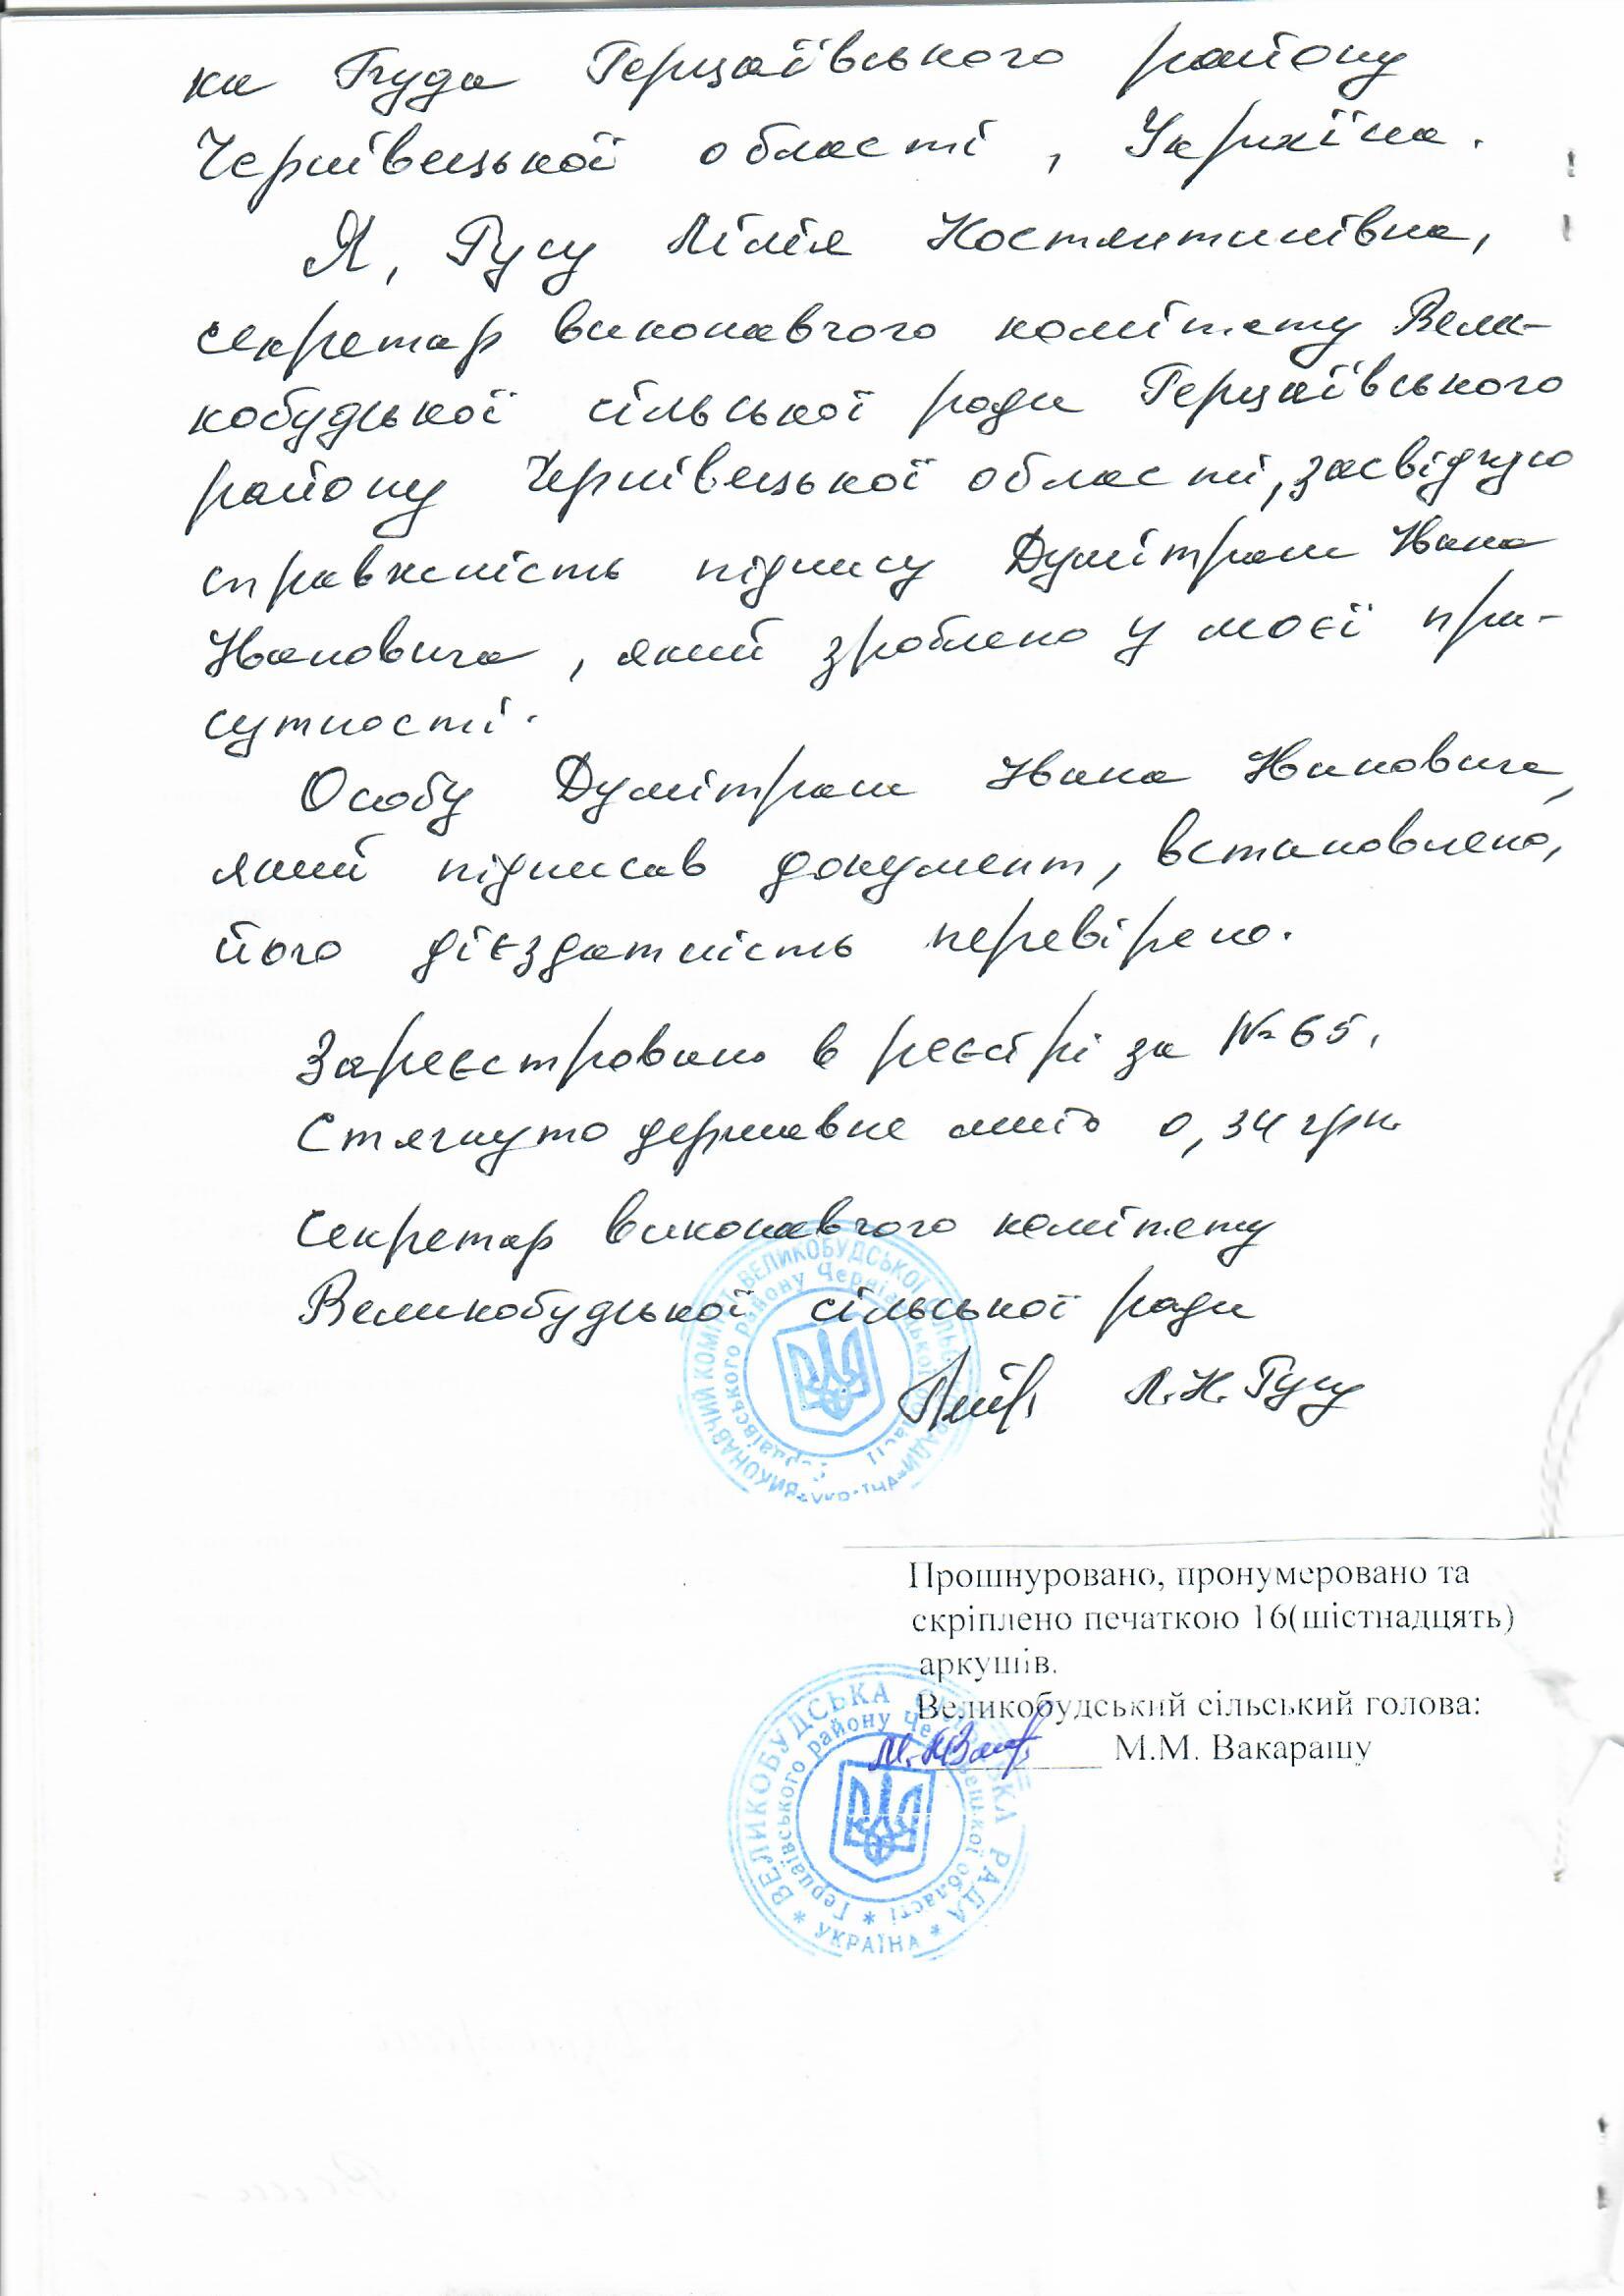 ка Буда Герцаївського району
Чернівецької області, Україна.
Я, Гусу Лілія Костянтинівна,
секретар виконавчого комітету Вели-
кобудської сільської ради Герцаївського
району Чернівецької області, засвідчую
справжність підпису Думітраш Івана
Івановича, який зроблено у моєї при-
сутності.
Особу Думітраш Івана Івановича,
який підписав документ, встановлено,
його дієздатність перевірено.
Зареєстровано в реєстрі за № 65.
Стягнуто державне мито 0,34 грн.
Секретар виконавчого комітету
Великобудської сільської ради
Л.К. Гусу
ВИКОНАВЧИЙ КОМІТЕТ ВЕЛИКОБУДСЬКОЇ СІЛЬСЬКОЇ РАДИ
Герцаївського району Чернівецької області
Прошнуровано, пронумеровано та
скріплено печаткою 16(шістнадцять)
аркушів.
Великобудський сільський голова:
М.М. Вакарашу
* ВЕЛИКОБУДСЬКА СІЛЬСЬКА РАДА *
Герцаївського району Чернівецької області *
УКРАЇНА